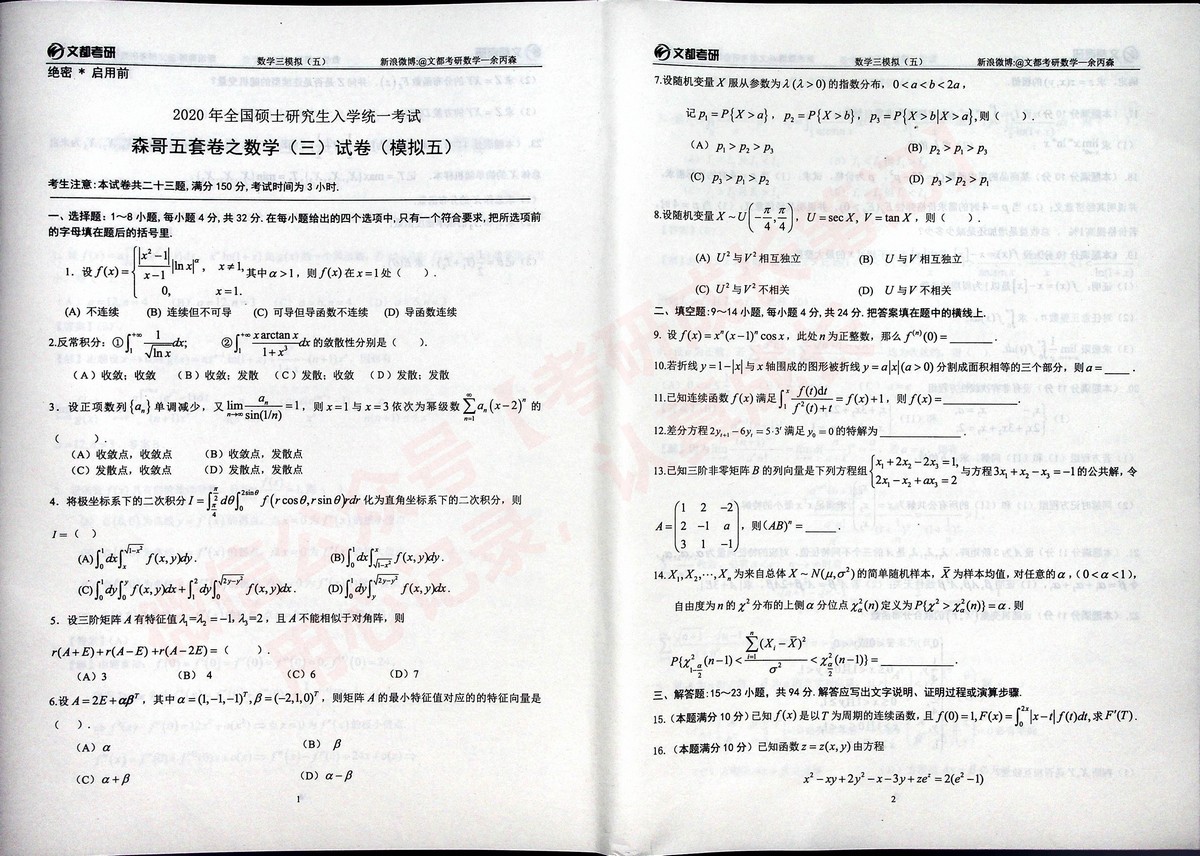 文都考研
数学三模拟（五） 新浪微博:@文都考研数学—余丙森
绝密 * 启用前
2020 年全国硕士研究生入学统一考试
森哥五套卷之数学（三）试卷（模拟五）
考生注意:本试卷共二十三题,满分 150 分,考试时间为 3 小时.
一、选择题: 1～8 小题,每小题 4 分,共 32 分.在每小题给出的四个选项中,只有一个符合要求,把所选项前
的字母填在题后的括号里.
1. 设 f(x)={ |x²−1|/(x−1) |ln|x||^α, x≠1, 0, x=1. 其中 α>1，则 f(x) 在 x=1 处（ ）.
(A) 不连续 (B) 连续但不可导 (C) 可导但导函数不连续 (D) 导函数连续
2.反常积分: ①∫₁^{+∞} 1/√(ln x) dx; ②∫₁^{+∞} x arctan x/(1+x³) dx 的敛散性分别是（ ）.
（A）收敛; 收敛 （B）收敛; 发散 （C）发散; 收敛 （D）发散; 发散
3. 设正项数列{aₙ}单调减少，又 lim_{n→∞} aₙ/sin(1/n)=1，则 x=1 与 x=3 依次为幂级数 ∑_{n=1}^{∞} aₙ(x−2)ⁿ 的
（ ）.
（A）收敛点，收敛点 （B）收敛点，发散点
（C）发散点，收敛点 （D）发散点，发散点
4. 将极坐标系下的二次积分 I=∫_{π/4}^{π/2} dθ∫₀^{2sinθ} f(r cosθ, r sinθ)rdr 化为直角坐标系下的二次积分，则
I=（ ）
(A)∫₀¹dx∫ₓ^{√(1−x²)} f(x,y)dy. (B)∫₀¹dx∫_{√(1−x²)}^{x} f(x,y)dy.
(C)∫₀¹dy∫₀^y f(x,y)dx+∫₁²dy∫₀^{√(2y−y²)} f(x,y)dx. (D)∫₀¹dy∫_y^{√(2y−y²)} f(x,y)dx.
5. 设三阶矩阵 A 有特征值 λ₁=λ₂=−1, λ₃=2，且 A 不能相似于对角阵，则
r(A+E)+r(A−E)+r(A−2E)=（ ）.
(A) 3 (B) 4 (C) 6 (D) 7
6.设 A=2E+αβᵀ，其中 α=(1,−1,−1)ᵀ, β=(−2,1,0)ᵀ，则矩阵 A 的最小特征值对应的的特征向量是
（ ）.
（A）α （B） β
（C）α+β (D) α−β
1
文都考研
数学三模拟（五） 新浪微博:@文都考研数学—余丙森
7.设随机变量 X 服从参数为 λ(λ>0) 的指数分布，0<a<b<2a，
记 p₁=P{X>a}，p₂=P{X>b}，p₃=P{X>b|X>a},则（ ）.
（A）p₁>p₂>p₃ (B) p₂>p₁>p₃
(C) p₃>p₁>p₂ (D) p₃>p₂>p₁
8.设随机变量 X~U(−π/4, π/4)，U=sec X, V=tan X，则（ ）.
(A) U² 与 V² 相互独立 (B) U 与 V 相互独立
(C) U² 与 V² 不相关 (D) U 与 V 不相关
二、填空题: 9～14 小题,每小题 4 分,共 24 分. 把答案填在题中的横线上.
9. 设 f(x)=xⁿ(x−1)ⁿ cos x，此处 n 为正整数，那么 f⁽ⁿ⁾(0)=________.
10.若折线 y=1−|x| 与 x 轴围成的图形被折线 y=a|x|(a>0) 分割成面积相等的三个部分，则 a=____.
11.已知连续函数 f(x) 满足 ∫₁ˣ f(t)dt/(f²(t)+t)=f(x)+1，则 f(x)=____________.
12.差分方程 2y_{t+1}−6y_t=5·3ᵗ 满足 y₀=0 的特解为____________.
13.已知三阶非零矩阵 B 的列向量是下列方程组{ x₁+2x₂−2x₃=1, 2x₁−x₂+ax₃=2 与方程 3x₁+x₂−x₃=−1 的公共解, 令
A=(1 2 −2; 2 −1 a; 3 1 −1)，则(AB)ⁿ=_____.
14.X₁,X₂,⋯,Xₙ 为来自总体 X~N(μ,σ²) 的简单随机样本，X̄ 为样本均值, 对任意的 α，(0<α<1)，
自由度为 n 的 χ² 分布的上侧 α 分位点 χ²_α(n) 定义为 P{χ²>χ²_α(n)}=α.则
P{χ²_{1−α/2}(n−1)<∑_{i=1}^{n}(Xᵢ−X̄)²/σ²<χ²_{α/2}(n−1)}=____________.
三、解答题: 15～23 小题，共 94 分. 解答应写出文字说明、证明过程或演算步骤.
15.（本题满分 10 分）已知 f(x) 是以 T 为周期的连续函数，且 f(0)=1, F(x)=∫₀^{2x}|x−t|f(t)dt, 求 F′(T).
16.（本题满分 10 分）已知函数 z=z(x,y) 由方程
x²−xy+2y²−x−3y+zeᶻ=2(e²−1)
2